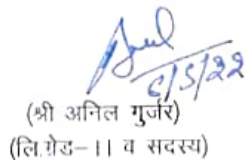 6/5/22
(श्री अनिल गुर्जर)
(लि.ग्रेड-।। व सदस्य)